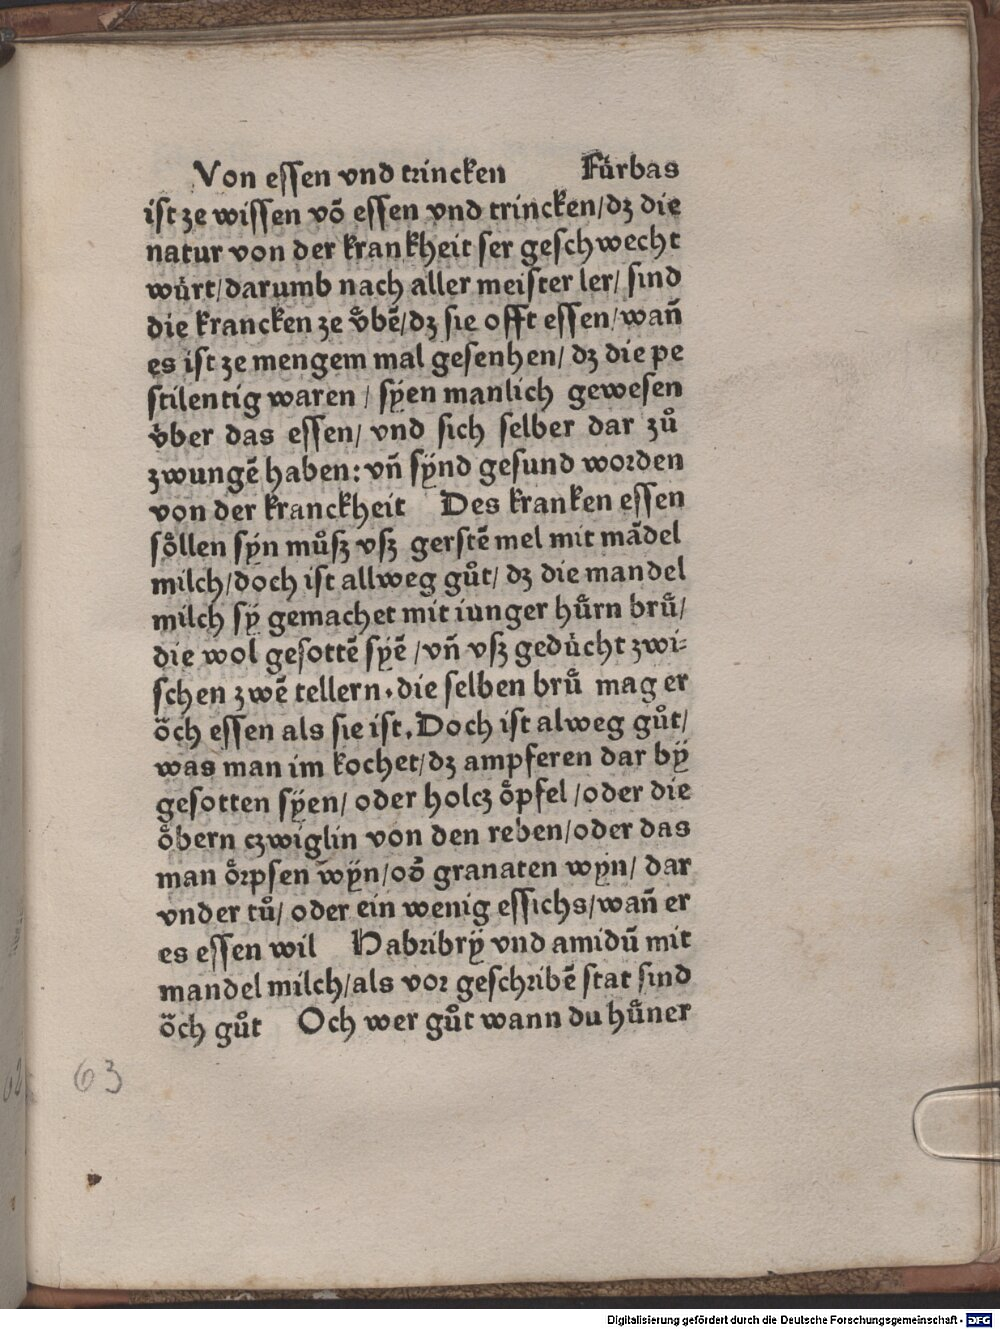 Von essen vnd trincken Fürbas
ist ze wissen võ essen vnd trincken/dʒ die
natur von der krankheit ser geschwecht
wu̍rt/darumb nach aller meister ler/ sind
die krancken ze vͤbẽ/dʒ sie offt essen/wañ
es ist ze mengem mal gesenhen/ dʒ die pe
stilentig waren / sÿen manlich gewesen
vͤber das essen/ vnd sich selber dar zuͦ
zwungẽ haben: vñ sÿnd gesund worden
von der kranckheit Des kranken essen
soͤllen sÿn muͦsʒ vsʒ gerstẽ mel mit mãdel
milch/doch ist allweg guͦt/ dʒ die mandel
milch sÿ gemachet mit iunger huͤrn bruͤ/
die wol gesottẽ sÿẽ /vñ vsʒ gedu̍cht zwi⸗
schen zwẽ tellern.die selben bruͤ mag er
oͮch essen als sie ist.Doch ist alweg guͦt/
was man im kochet/dʒ ampferen dar bÿ
gesotten sÿen/ oder holcz oͤpfel /oder die
oͤbern czwiglin von den reben/oder das
man oͤrpsen wÿn/oď granaten wyn/ dar
vnder tuͦ/ oder ein wenig essichs/wañ er
es essen wil Habribrÿ vnd amidũ mit
mandel milch/als vor geschribẽ stat sind
oͮch guͦt Och wer guͦt wann du huͤner
63
Digitalisierung gefördert durch die Deutsche Forschungsgemeinschaft - DFG